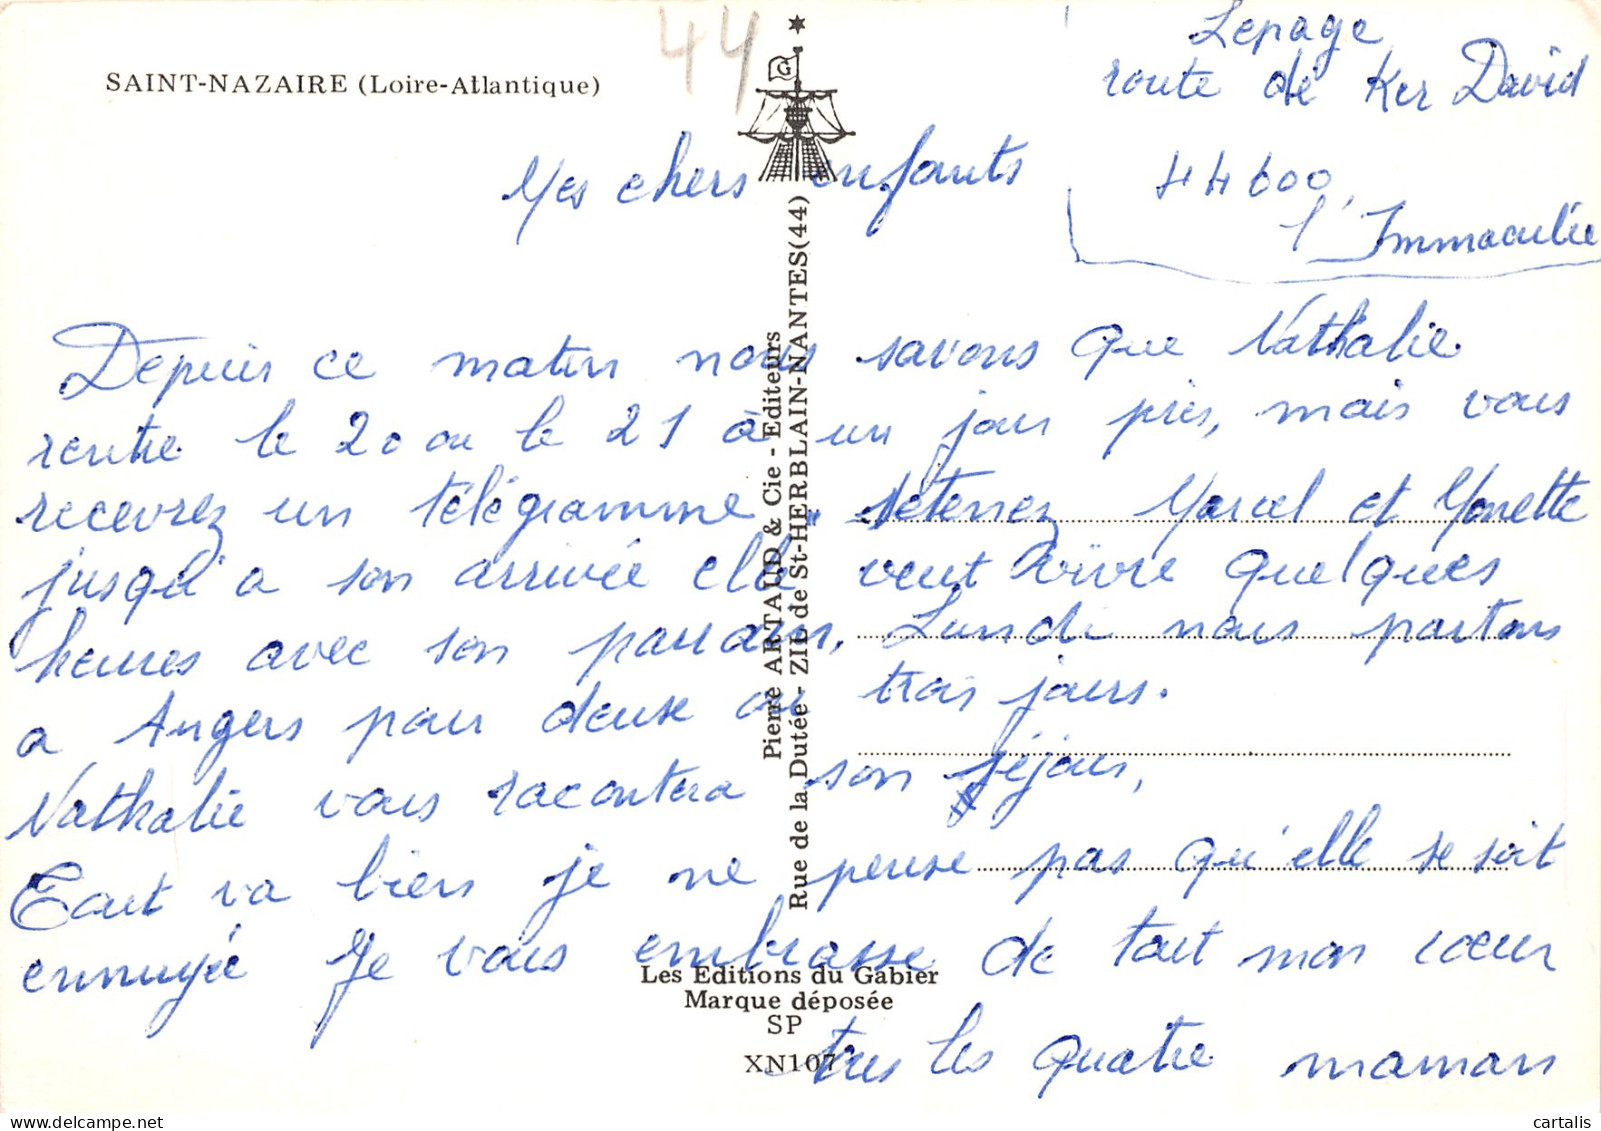 SAINT-NAZAIRE (Loire-Atlantique)
44
Lepage
route de Ker David
44600
l'Immaculée
Mes chers enfants
Depuis ce matin nous savons que Nathalie
rentre le 20 ou le 21 à un jour près, mais vous
recevrez un télégramme, Marcel et Monette
jusqu'a son arrivée elle veut vivre quelques
heures avec son parrain, Lundi nous partons
a Angers pour deux ou trois jours.
Nathalie vous racontera son séjour,
Tout va bien je ne pense pas qu'elle se soit
ennuyée Je vous embrasse de tout mon cœur
tous les quatre maman
Pierre ARTAUD & Cie - Editeurs
Rue de la Dutée - ZIL de St-HERBLAIN-NANTES(44)
Les Editions du Gabier
Marque déposée
SP
XN107
cartalis.com